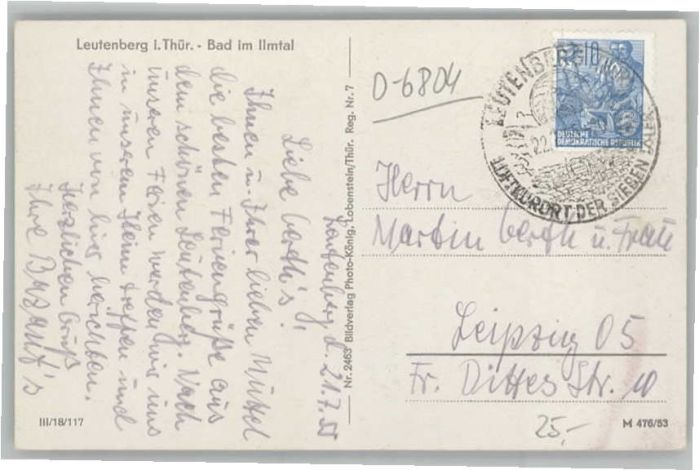 Leutenberg i. Thür. - Bad im Ilmtal
Leutenberg d. 21.7.55
Liebe Berth's!
Ihnen u. Ihrer lieben Muttel
die besten Feriengrüße aus
dem schönen Leutenberg. Nach
unseren Ferien werden wir uns
in unserem Heim treffen und
Ihnen von hier berichten.
Herzlichen Gruß
Ihre
III/18/117
Nr. 2463 Bildverlag Photo-König, Lobenstein/Thür. Reg. Nr. 7
D-6804
LEUTENBERG
LUFTKURORT DER SIEBEN TÄLER
22.
10
DEUTSCHE
DEMOKRATISCHE REPUBLIK
Herrn
Martin Berth u. Frau
Leipzig O5
Fr. Dittes Str. 10
25,-
M 476/53